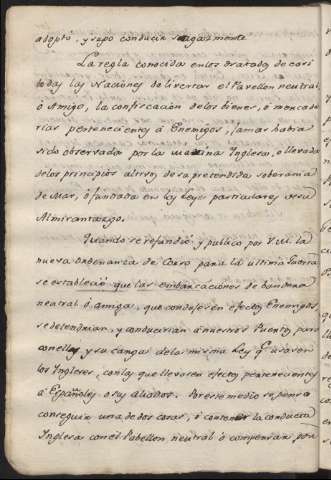 adoptó, y supo conducir sagazmente
La regla conocida en los tratados de casi
todas las Naciones de livertar el Pavellon neutral
ó Amigo, la confiscacion de los bienes, ó mercade
rias pertenecientes á Enemigos, jamas habia
sido observada por la Marina Inglesa, ó llevada
de los principios altivos de su pretendida soberania
de Mar, ó fundada en las Leyes particulares de su
Almirantazgo.
Quando se refundió y publicó por V.M. la
nueva ordenanza de Corso para la ultima Guerra
se estableció que las embarcaciones de bandera
neutral ó amiga, que condujesen efectos Enemigos
se detendrian, y conducirian á nuestros Puertos, para
con ellas y su carga de la misma Ley q.e usasen
los Ingleses, con las que llevasen efectos pertenecientes
á Españoles o sus aliados. Por este medio se penso
conseguir una de dos cosas, ó contener la conducta
Inglesa con el Pabellon neutral ó compensar por